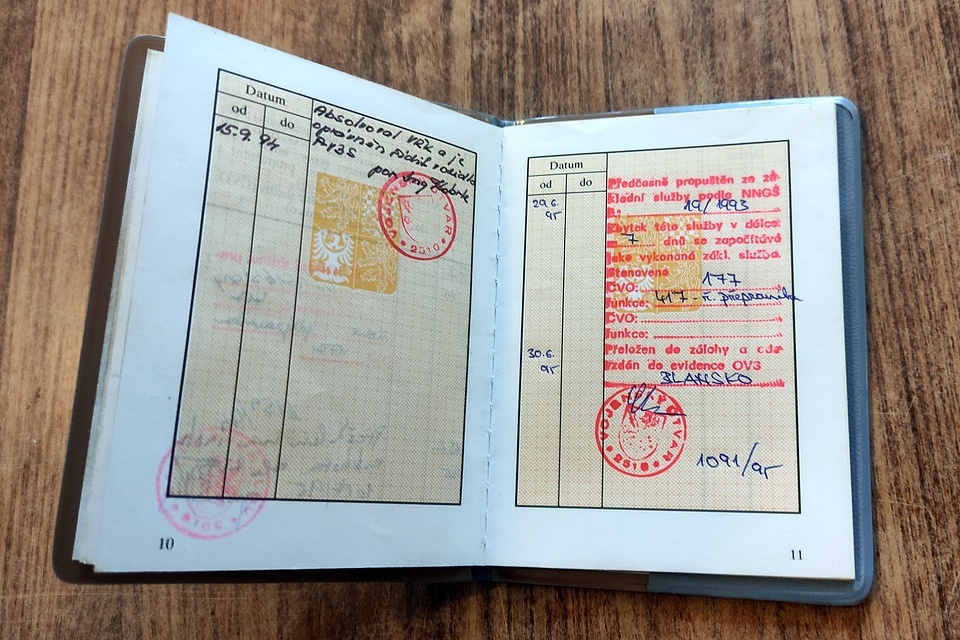 Datum
od do
15.9.94 Absolvoval VŘK a je
oprávněn řídit vozidlo
PV3S
por. Ing.
VOJENSKÝ ÚTVAR
2510
10
Datum
od do
29.6.
95
Předčasně propuštěn ze zá-
kladní služby podle NNGŠ
č.: 19/1993
Zbytek této služby v délce
7 dnů se započítává
jako vykonaná zákl. služba.
Stanovena
ČVO: 177
funkce: 417 - ř. přepravník
ČVO:
funkce:
30.6.
95
Přeložen do zálohy a ode-
vzdán do evidence OVS
BLANSKO
VOJENSKÝ ÚTVAR
2510
1091/95
11